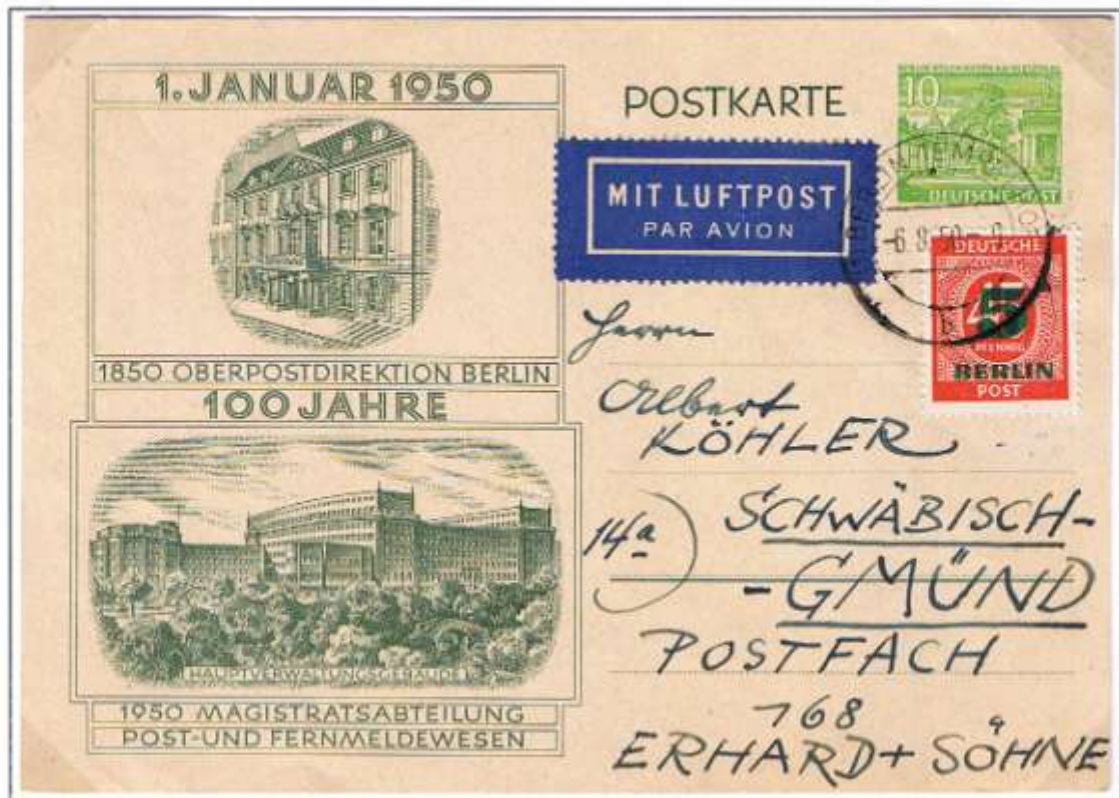 1. JANUAR 1950
1850 OBERPOSTDIREKTION BERLIN
100 JAHRE
HAUPTVERWALTUNGSGEBÄUDE
1950 MAGISTRATSABTEILUNG
POST-UND FERNMELDEWESEN
POSTKARTE
10
DEUTSCHE POST
MIT LUFTPOST
PAR AVION
-6.8.50
DEUTSCHE
5
PFENNIG
BERLIN
POST
Herrn
Albert
KÖHLER
14a) SCHWÄBISCH-
-GMÜND
POSTFACH
768
ERHARD + SÖHNE